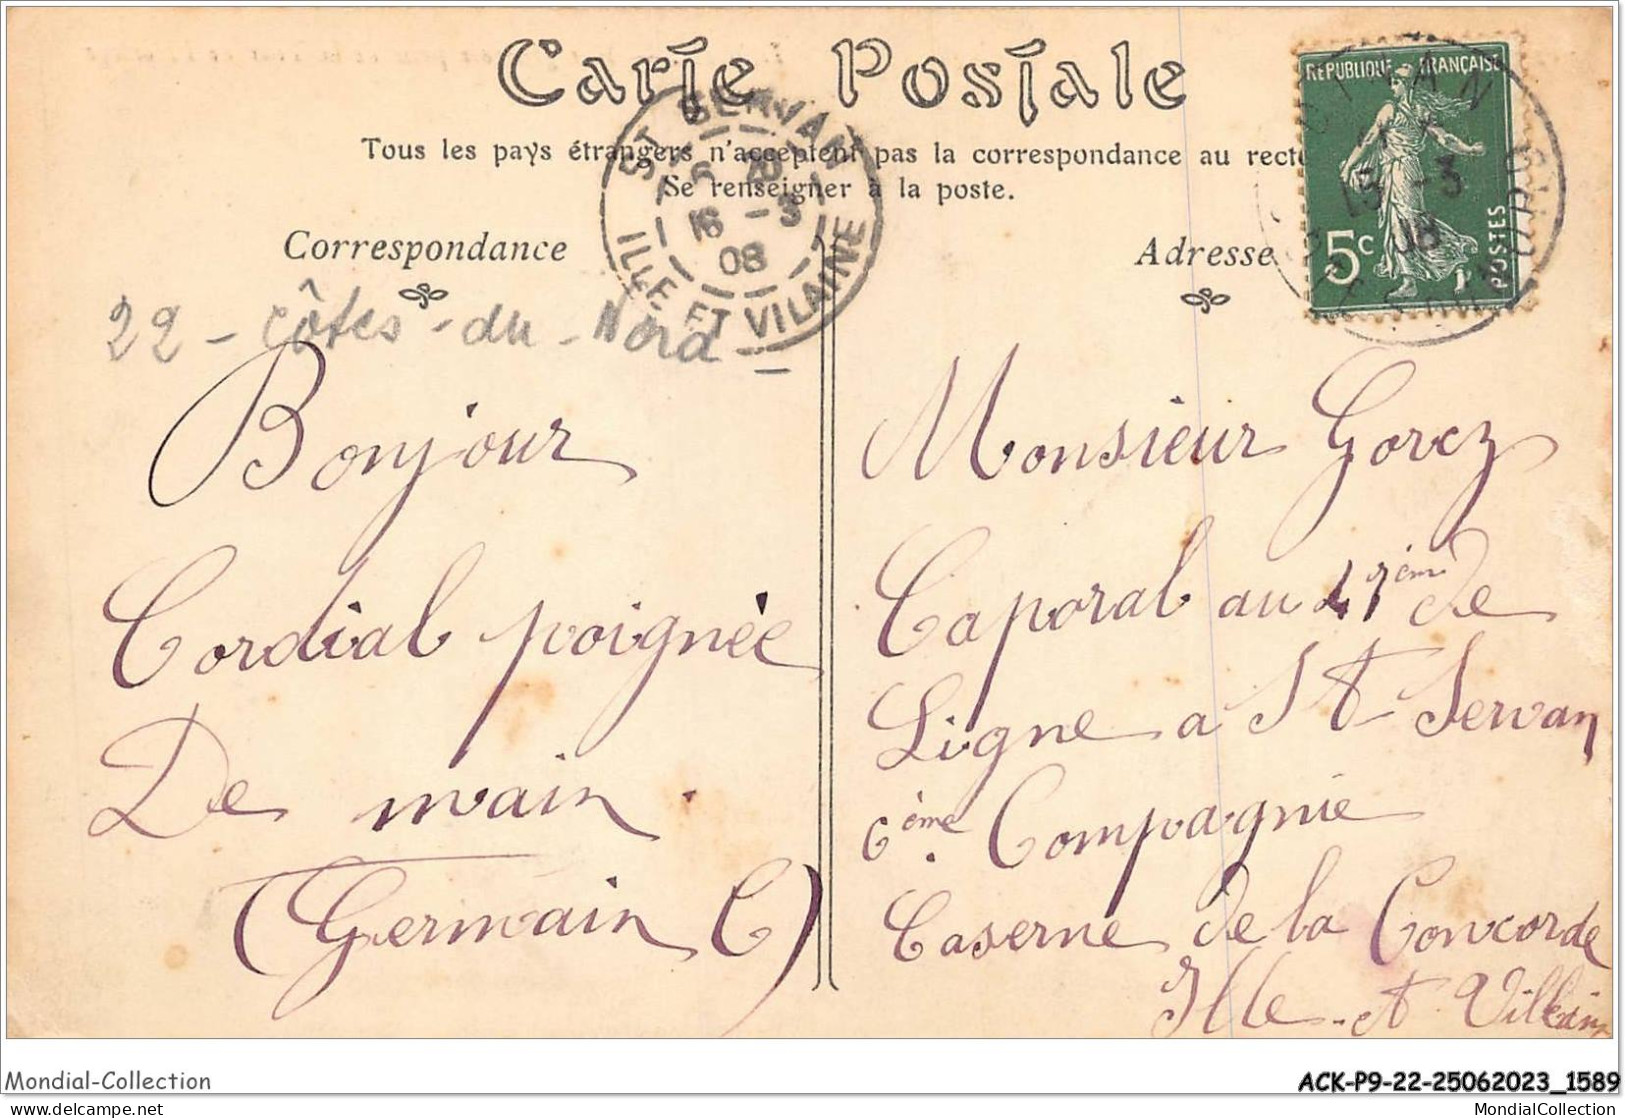 Carte Postale
Tous les pays étrangers n'acceptent pas la correspondance au recto
Se renseigner à la poste.
Correspondance
Adresse
RÉPUBLIQUE FRANÇAISE
5c
POSTES
15 -3
08
ST SERVAN
16 -3
08
ILLE ET VILAINE
22 - Côtes-du-Nord
Bonjour
Cordial poignée
De main.
(Germain C)
Monsieur Gorez
Caporal au 47ème de
Ligne a St Servan
6ème Compagnie
Caserne de la Concorde
Ille-et-Vilaine
Mondial-Collection
ACK-P9-22-25062023_1589
www.delcampe.net
MondialCollection